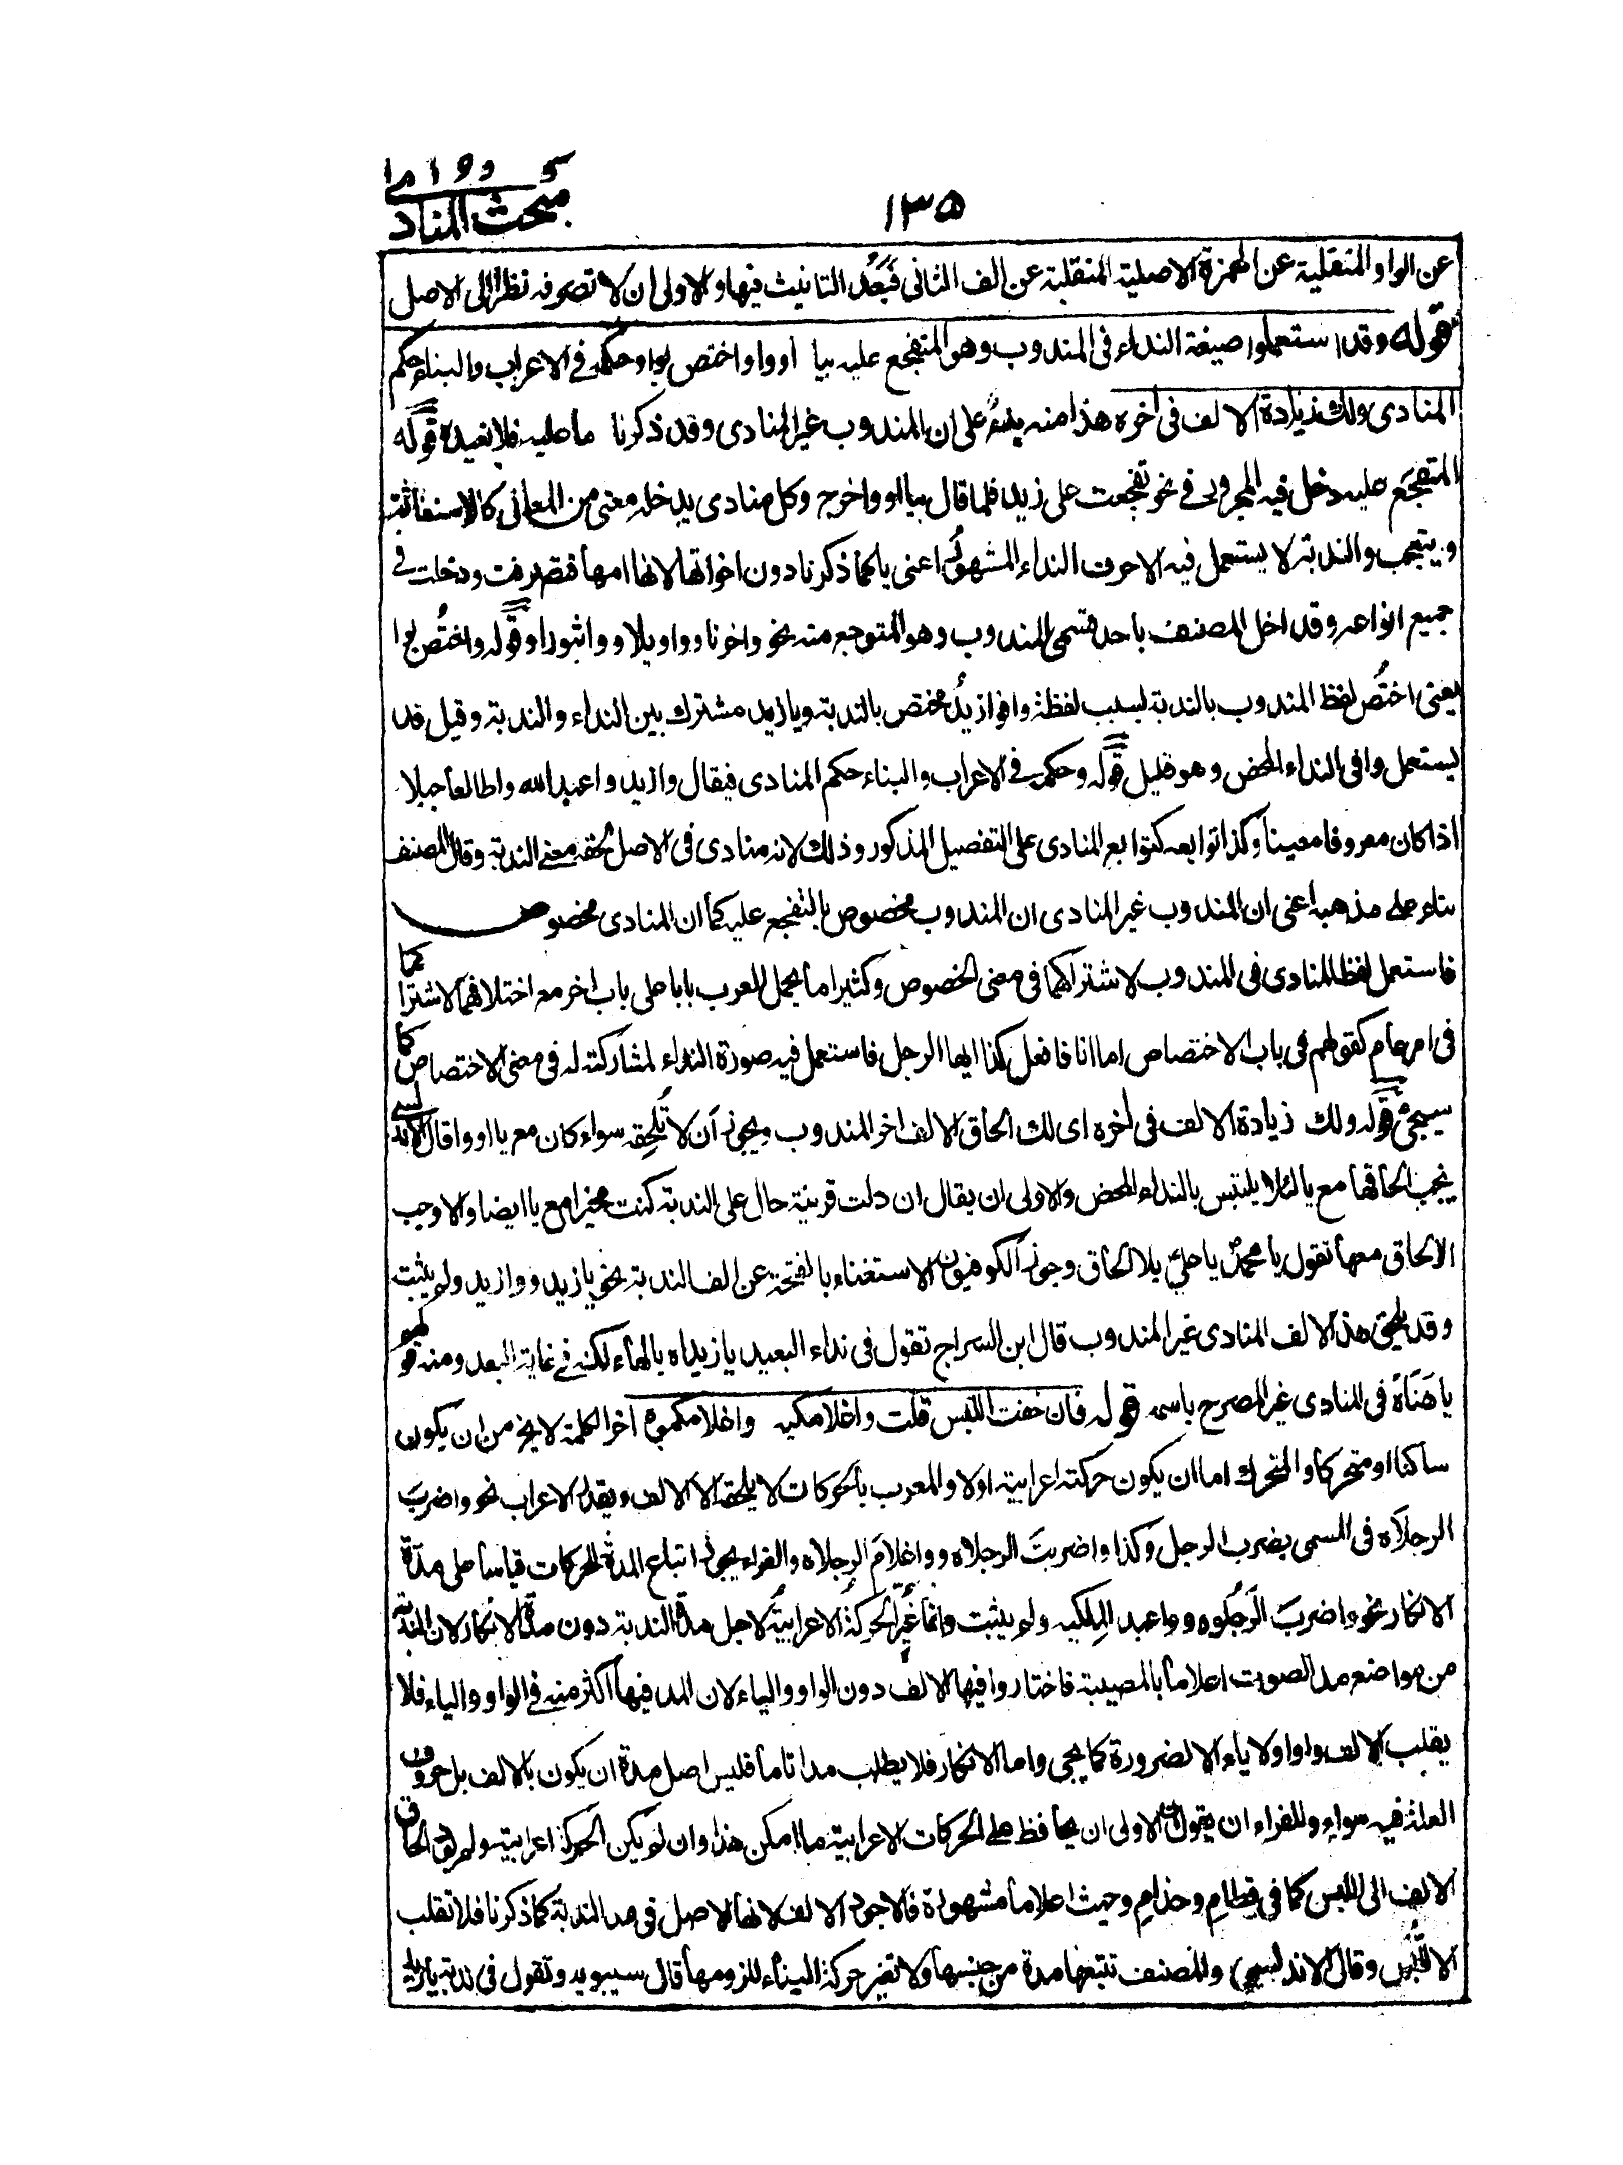 ١٣٥
مبحث المنادى
عن الواو المنقلبة عن الهمزة الاصلية المنقلبة عن الف الثانى فبَعُد التانيث فيها والاولى ان لا تصرفه نظرا الى الاصل
قوله وقد استعملوا صيغة النداء فى المندوب وهو المتفجع عليه بيا او وا واختص بوا وحكمه فى الاعراب والبناء حكم
المنادى ولك زيادة الالف فى اخره هذا منه على ان المندوب غير المنادى وقد ذكرنا ما عليه فلا نعيده قوله
المتفجع عليه دخل فيه المجرور فى نحو تفجعت على زيد فلما قال بيا او وا خرج وكل منادى يدخله معنى من المعانى كالاستغاثة
والتعجب والندبة لا يستعمل فيه الا حرف النداء المشهور اعنى يا كما ذكرنا دون اخواتها لانها امها فتصرفت ودخلت فى
جميع انواعه وقد اخل المصنف باحد قسمى المندوب وهو المتوجع منه نحو واحزنا وواويلا وواثبورا وقوله واختص بوا
يعنى اختص لفظ المندوب بالندبة بسبب لفظة وا فوازيدُ مختص بالندبة ويازيد مشترك بين النداء والندبة وقيل قد
يستعمل وا فى النداء المحض وهو قليل قوله وحكمه فى الاعراب والبناء حكم المنادى فيقال وازيد واعبد الله واطالعا جبلا
اذا كان معروفا معينا وكذا توابعه كتوابع المنادى على التفصيل المذكور وذلك لانه منادى فى الاصل لحقه معنى الندبة وقال المصنف
بناء على مذهبه اعنى ان المندوب غير المنادى ان المندوب مخصوص بالتفجع عليه كما ان المنادى مخصوص
فاستعمل لفظ المنادى فى المندوب لاشتراكهما فى معنى الخصوص وكثيرا ما يحمل العرب بابا على باب اخر مع اختلافهما لاشتراكهما
فى امر عام كقولهم فى باب الاختصاص اما انا فافعل كذا ايها الرجل فاستعمل فيه صورة النداء لمشاركته له فى معنى الاختصاص كما
سيجئ قوله ولك زيادة الالف فى اخره اى لك الحاق الالف اخر المندوب ويجوز ان لا تلحقه سواء كان مع يا او وا قال الاندلسى
يجب الحاقها مع يا لئلا يلتبس بالنداء المحض والاولى ان يقال ان دلت قرينة حال على الندبة كنت مخيرا مع يا ايضا والا وجب
الالحاق معها تقول يا محمد يا على بلا الحاق وجوز الكوفيون الاستغناء بالفتحة عن الف الندبة نحو يازيد ووازيد ولم يثبت
وقد يلحق هذا الالف المنادى غير المندوب قال ابن السراج تقول فى نداء البعيد يا زيداه بالهاء لكنه فى غاية البعد ومنه قولهم
يا هَنَاهْ فى المنادى غير المصرح باسمه قوله فان خفت اللبس قلت واغلامكيه واغلامكموه اخر الكلمة لا يخ من ان يكون
ساكنا او متحركا والمتحرك اما ان يكون حركته اعرابية اولا والمعرب بالحركات لا يلحقه الا الالف ويقدر الاعراب نحو واضربَ
الرجلاه فى المسمى بضرب الرجل وكذا واضربت الرجلاه وواغلام الرجلاه والفراء يجوز اتباع المدة للحركات قياسا على مدة
الانكار نحو واضربَ الرجُلوه وواعبد الملكيه ولم يثبت وانما غُيّر الحركة الاعرابية لاجل مدة الندبة دون مدة الانكار لان الندبة
من مواضع مد الصوت اعلاما بالمصيبة فاختاروا فيها الالف دون الواو والياء لان المد فيها اكثر منه فى الواو والياء فلا
يقلب الالف واوا ولا ياء الا لضرورة كما يجئ واما الانكار فلا يطلب مدا تاما فليس اصل مدة ان يكون بالالف بل حروف
العلة فيه سواء وللفراء ان يقول الاولى ان يحافظ على الحركات الاعرابية ما امكن هذا وان لم يكن الحركة اعرابية ولم يؤد الحاق
الالف الى اللبس كما فى قطامِ وحذامِ وحيث اعلاما مشهورة فالاجود الالف لانها الاصل فى مد الندبة كما ذكرنا فلا تقلب
الا للّبس وقال الاندلسى والمصنف تتبعها مدة من جنسها ولا تغير حركة البناء للزومها قال سيبويه وتقول فى ندبة يازيد